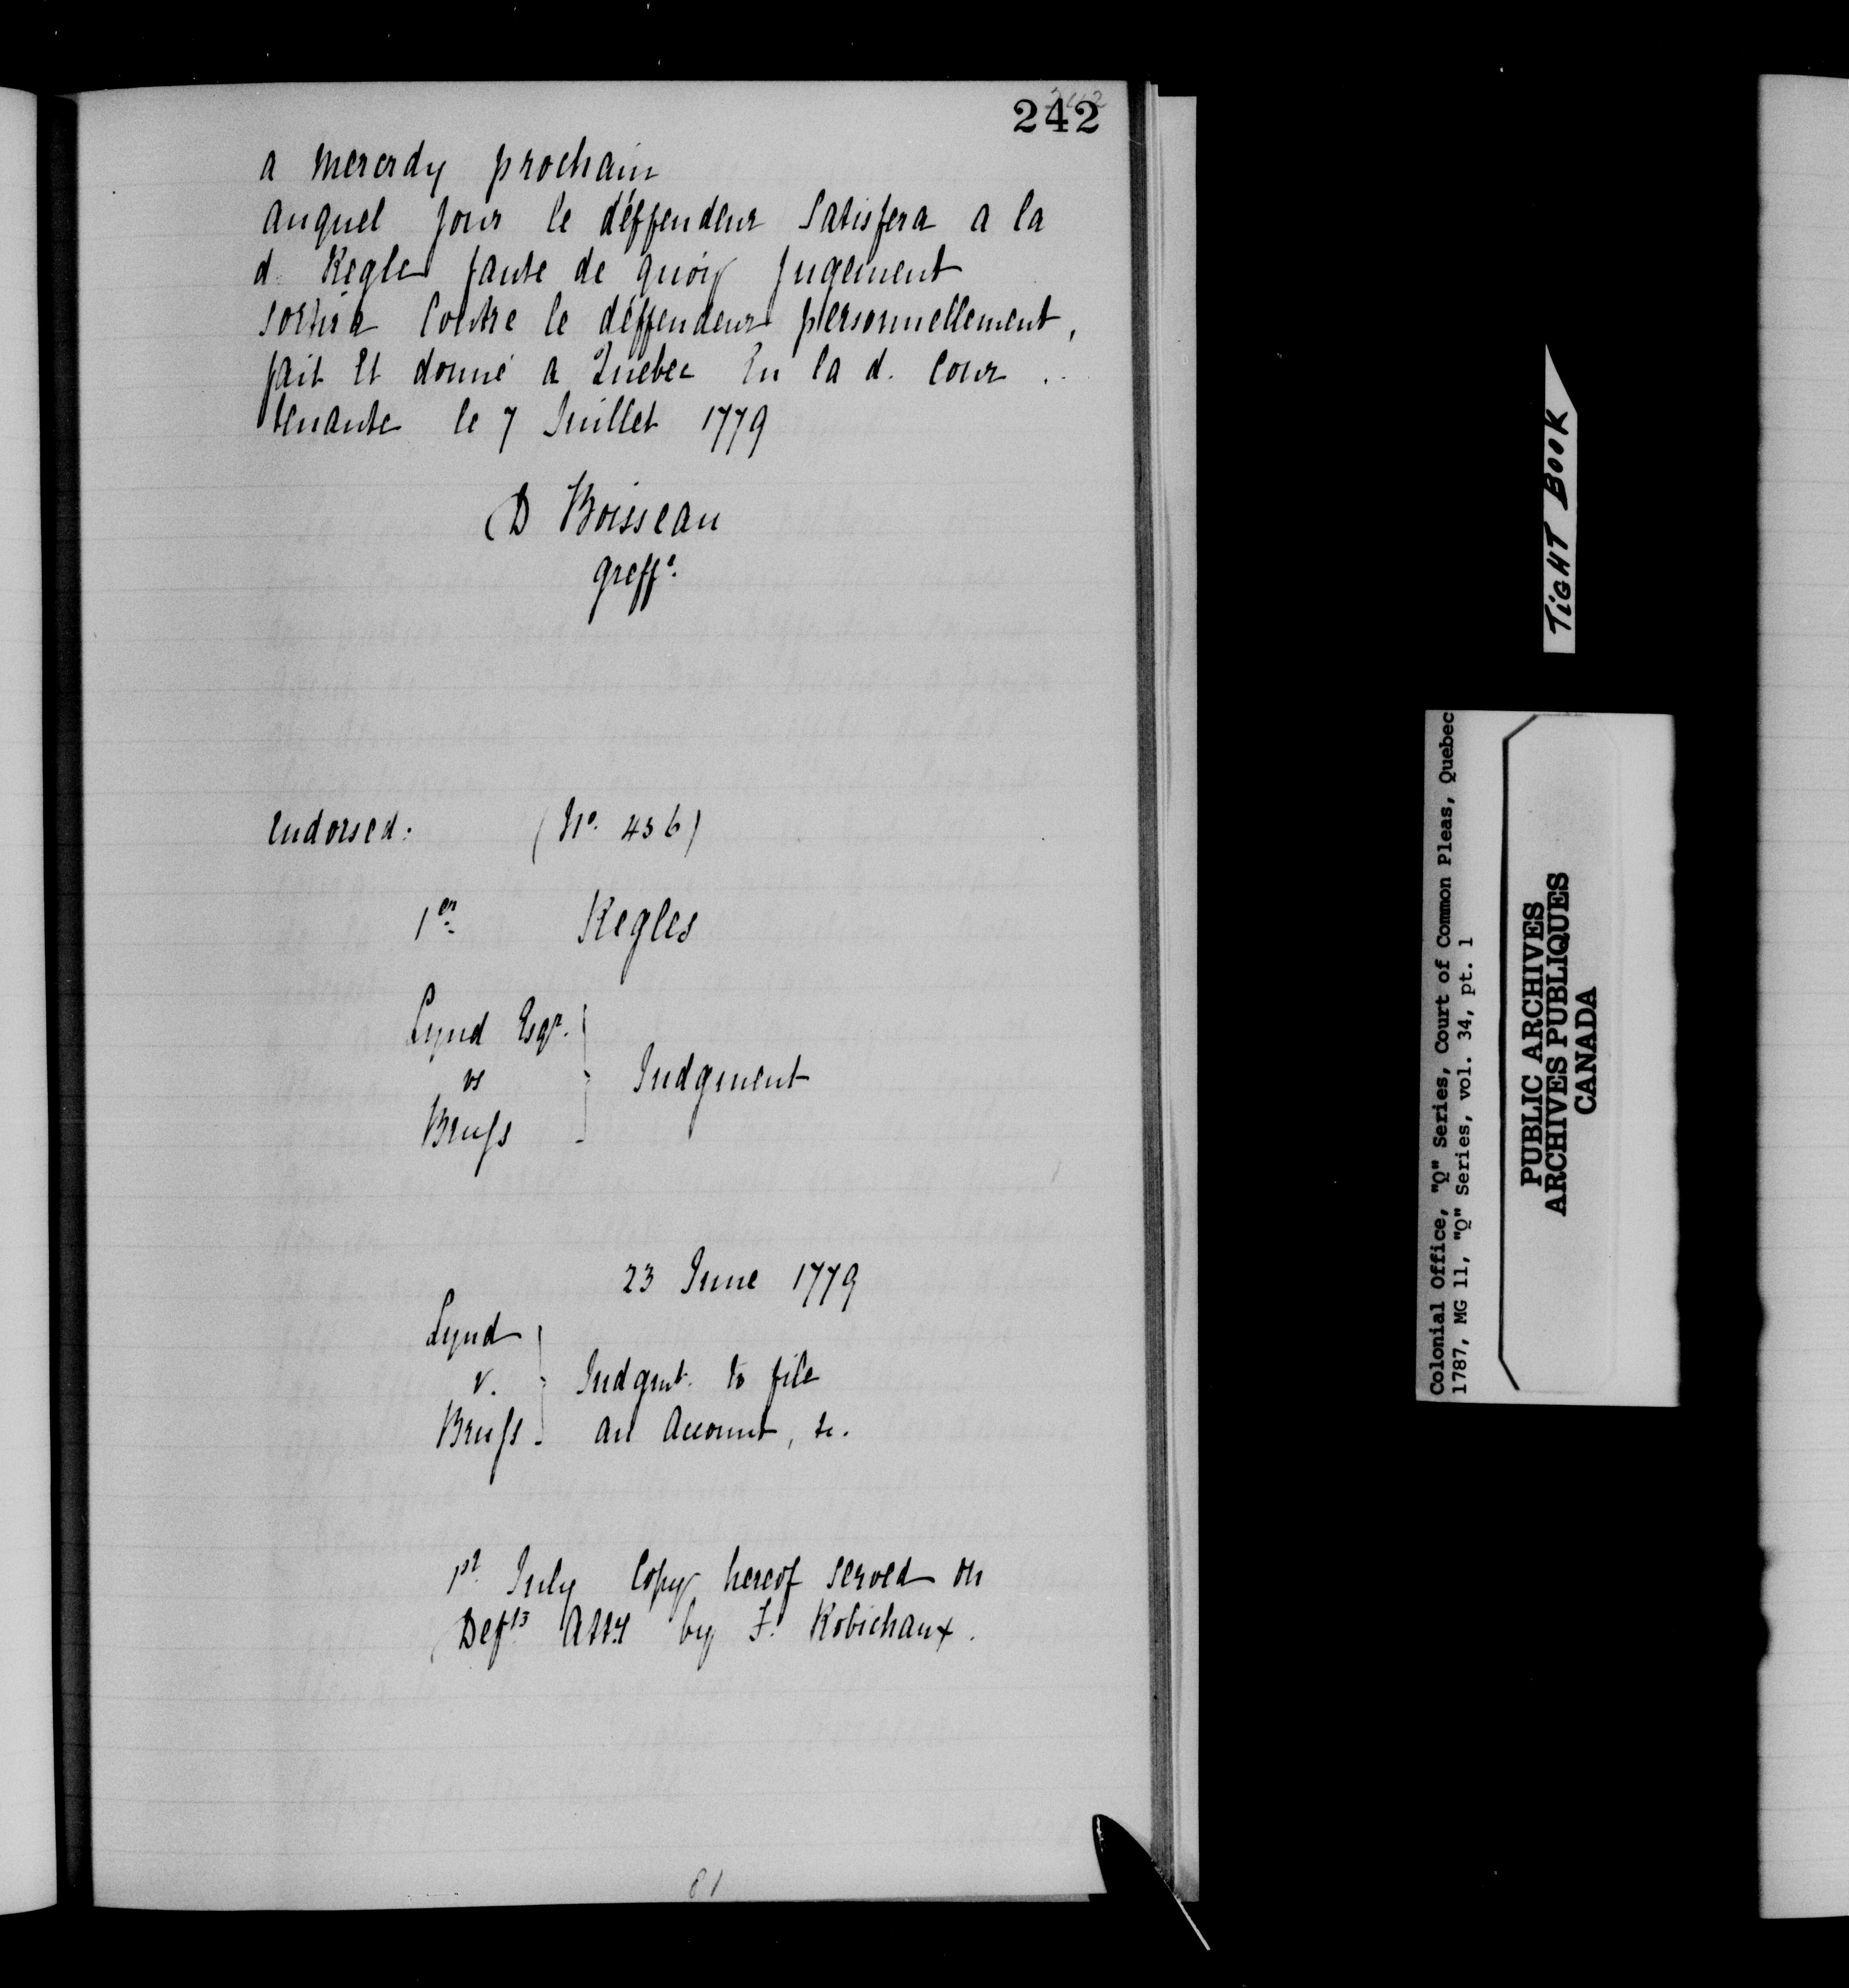 242
242
a mecrdy prochain
auquel jour le déffendeur satisfera a la
d. Regle faute de quoy jugement
sortira contre le déffendeur personnellement,
fait Et donné a Quebec En la d. Cour ..
tenante le 7 Juillet 1779
D Boisseau
greffr.
Endorsed. (No. 436)
1er. Regles
Lynd Esqr.
vs } Judgment
Bruſs
23 June 1779
Lynd
v. } Judgmt. to file
Bruſs. an Account, &c.
1st July Copy hereof served on
Defts Atty by F. Robichaux.
81
TIGHT BOOK
Colonial Office, "Q" Series, Court of Common Pleas, Quebec
1787, MG 11, "Q" Series, vol. 34, pt. 1
PUBLIC ARCHIVES
ARCHIVES PUBLIQUES
CANADA